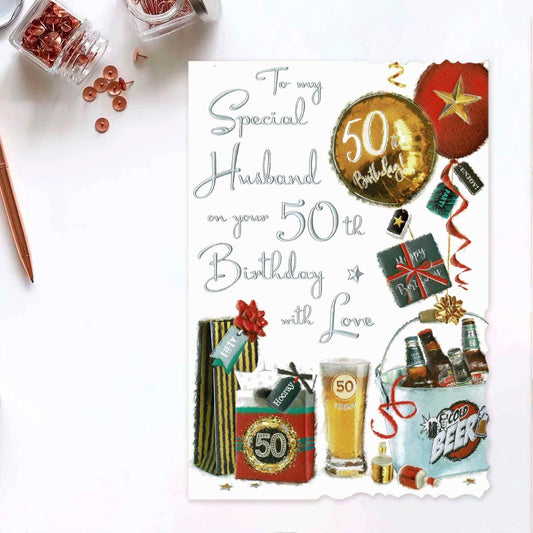 To my
Special
Husband
on your 50th
Birthday
with Love
50th
Birthday!
ENJOY!
PARTY!
Happy
Birthday
FIFTY
Hooray
50
50
TODAY
COLD
BEER